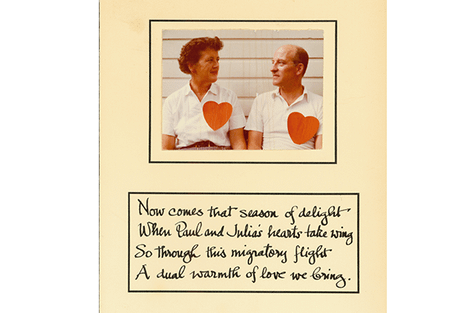 Now comes that season of delight
When Paul and Julia's hearts take wing
So through this migratory flight
A dual warmth of love we bring.